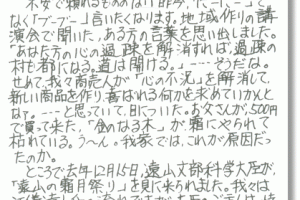 不安で頼れるもののない昨今、
なく「ブーブー」言いたくなります。地域作りの講
演会で聞いた、ある方の言葉を思い出しました。
「あなた方の心の過疎を解消すれば、過疎の
村も都になる。道は開ける。」……そうだな。
せめて、我々商売人が「心の不況」を解消して
新しい商品を作り、喜ばれる何かを求めていかんと
なァ。---と思っていて、目についた。お父さんが、500円
で買って来た、「金のなる木」が霜にやられて
枯れている。う〜ん。我家では、これが原因だっ
たのか。
ところで去年12月15日、遠山文部科学大臣が、
「遠山の霜月祭り」を見に来られました。我々は